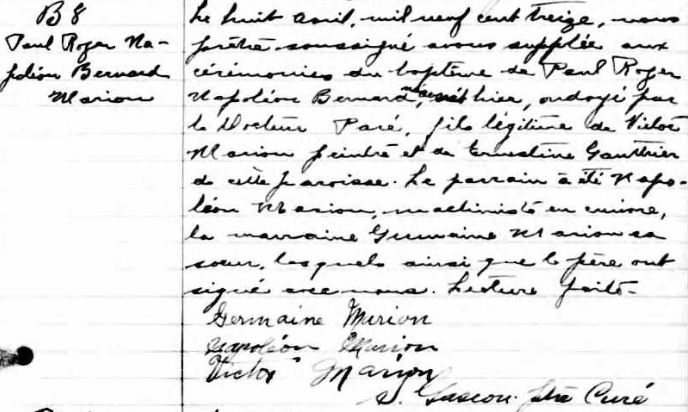 B 8
Paul Roger Na-
poléon Bernard
Marion
Le huit avril, mil neuf cent treize, nous
prêtre soussigné avons supplée aux
cérémonies du baptême de Paul Roger
Napoléon Bernard, né hier, ondoyé par
le Docteur Paré, fils légitime de Victor
Marion peintre et de Ernestine Gauthier
de cette paroisse. Le parrain a été Napo-
léon Marion, machiniste en cuivre,
la marraine Germaine Marion sa
soeur, lesquels ainsi que le père ont
signé avec nous. Lecture faite.
Germaine Marion
Napoléon Marion
Victor Marion
Gascon ptre Curé